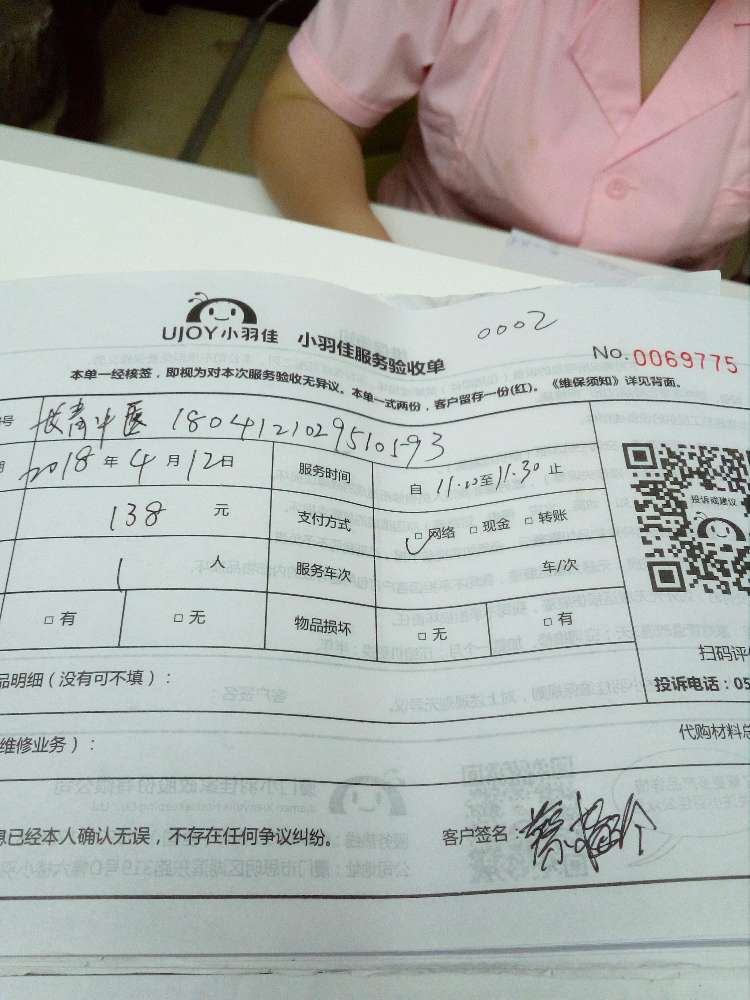 0002
UJOY小羽佳 小羽佳服务验收单
No.0069775
本单一经核签，即视为对本次服务验收无异议。本单一式两份，客户留存一份(红)。《维保须知》详见背面。
号 长青中医 1804121029510593
期 2018年4月12日 服务时间 自 11.00至11.30止
投诉或建议
138 元 支付方式 □网络 □现金 □转账
1 人 服务车次 车/次
□有 □无 物品损坏 □无 □有
扫码评
品明细（没有可不填）：
投诉电话：05
代购材料总
维修业务）：
息已经本人确认无误，不存在任何争议纠纷。 客户签名：